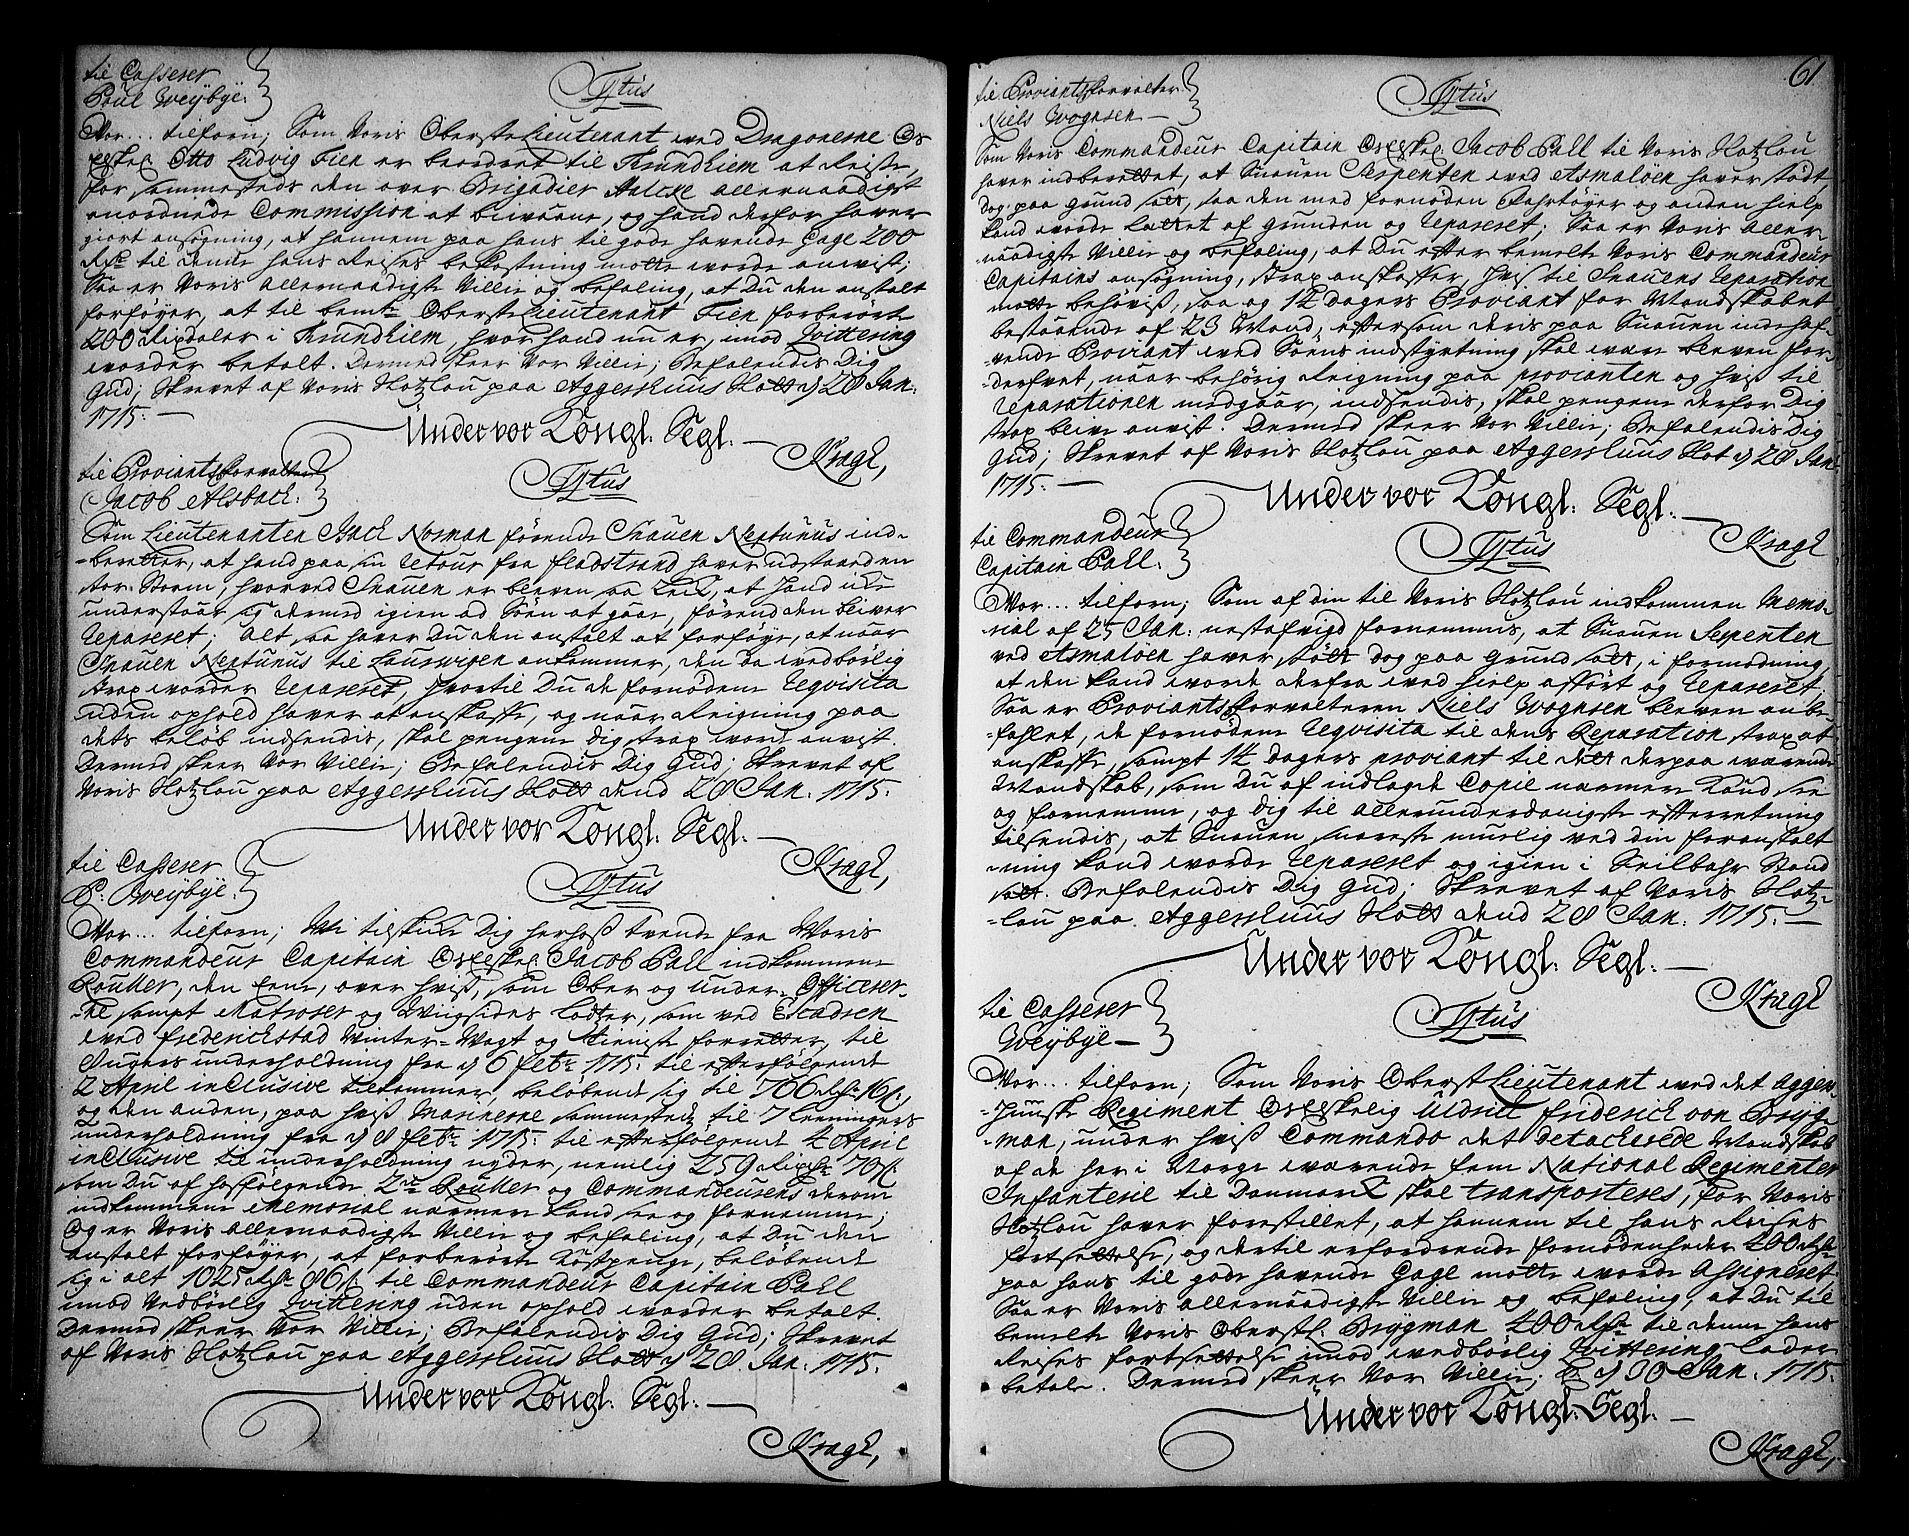 til Casserer
Poul Weÿbÿe.
Tÿtus
Vor... tilforn; Som Voris Oberste Lieutenant ved Dragonerne Os
elskel. Otto Ludvig Fien er beordret til Trundhiem at Reise,
for sammesteds den over Brigadier allernaadigst
anordnede Commission at biivaane, og hand derfor haver
giort ansøgning, at hannem paa hans til gode havende Gage 200
Rdr til denne hans Reises bekostning motte worde anvist;
Saa er Voris Allernaadigste Villie og befaling, at Du den anstalt
forføyer, at til bemte Oberste Lieutenant Fien forberørte
200 Rixdaler i Trundhiem, hvor hand nu er, imod Qvittering
worder betalt. Dermed skeer Vor Villie; Befalendis Dig
Gud; Skrevet af Voris Slotzlou paa Aggershuus Slott d 28 Jan:
1715.
Under vor Kongl. Segl.
Kragh,
til Proviantsforvalter
Jacob Alsbach.
Tÿtus
Som Lieutenanten Isack Norman førende Snauen Neptunus ind-
-beretter, at hand paa sin Retour fra fladstrand haver udstaaeden
stor Storm, hvorved Snauen er bleven saa Leck, at Hand icke
understaar sig dermed igien ad Søen at gaae, førend den bliver
Repareret; Alt saa haver Du den anstalt at forføye, at naar
Snauen Neptunus til Laurwigen ankommer, den da wedbørlig
strax worder Repareret, hvortil Du de fornødene Reqvisita
uden ophold haver at anskaffe, og naar Reigning paa
dets beløb indsendis, skal pengene dig strax worde anvist.
Dermed skeer Vor Villie; Befalendis Dig Gud; Skrevet af
Voris Slotzlou paa Aggershuus Slott dend 28 Jan. 1715.
Under vor Kongl. Segl.
Kragh,
til Casserer
P. Weÿbÿe.
Tÿtus
Vor... tilforn; Wi tilskicke Dig herhoss tvende fra Voris
Commandeur Capitain Oselskel. Jacob Pall indkommene
Roller, den eene, over hviss, som Ober og under Officerer-
-ne sampt Matroser og Wiigsides lodser, som ved Escadren
wed frederichstad Winter-Vagt og tieniste forretter, til
Augers underholdning fra d 6 febr 1715 til efterfølgende
2 April inclusive tilkommer, beløbende sig til 766 Rdr 16 s,
og den anden, paa hviss Marinerne sammesteds til 7 Leeningers
underholdning fra d 8 febr 1715 til efterfølgende 4 April
inclusive til underholdning nyder, nemlig 259 Rixdr 70 s.
som Du af hosfølgende 2de Roller og Commandeurens derom
indkommene Memorial narmere kand see og fornemme;
Og er Voris allernaadigste Villie og befaling, at Du den
anstalt forføyer, at forberørte Kostpenge, beløbende
sig i alt 1025 Rdr 86 s. til Commandeur Capitain Pall
imod Vedbørlig Qvittering uden ophold worder betalt.
Dermed skeer Vor Villie; Befalendis Dig Gud; Skrevet
af Voris Slotzlou paa Aggershuus Slott d 28 Jan. 1715.
Under vor Kongl. Segl.
Kragh,
61
til Proviantsforvalter
Niels Wognsen
Tÿtus
Som Voris Commandeur Capitain Oselskel. Jacob Pall til Voris Slotzlou
haver indberettet, at Snauen Serpenten wed Asmaløen haver stødt,
dog paa grund satt, saa den med fornøden Fartøyer og anden hielp
kand worde lættet af grunden og Repareret; Saa er Voris Aller-
naadigste Villie og befaling, at Du efter bemelte Voris Commandeur
Capitains ansøgning, strax anskaffer, hvis til Snauens Reparation
motte behøvis, saa og 14 dagers Proviant for Mandskabet
bestaaende af 23 Mand, eftersom deris paa Snauen indehaf-
vende Proviant wed Søens indstyrtning skal ware bleven for-
derfvet, naar behørig Reigning paa provianten og hviss til
Reparationen medgaar, indsendis, skal pengene derfor Dig
strax blive anvist. Dermed skeer Vor Villie; Befalendis Dig
Gud; Skrevet af Voris Slotzlou paa Aggershuus Slot d 28 Jan:
1715.
Under vor Kongl. Segl.
Kragh
til Commandeur
Capitain Pall.
Tÿtus
Vor... tilforn; Som af din til Voris Slotzlou indkommen Memo-
rial af 25 Jan: nestafvigd fornemmis, at Snauen Serpenten
ved Asmaløen haver stött dog paa grund satt, i formodning,
at den kand worde derfra wed hielp afført og Repareret,
Saa er Proviantsforvalteren Niels Wognsen bleven anbe-
-fahlet, de fornødene Reqvisita til dens Reparation strax at
anskaffe, sampt 14 dagers proviant til det derpaa warende
Mandskab, som Du af indlagde Copie narmere kand see
og fornemme, og dig til allerunderdanigste efterretning
tilsendis, at Snauen, snareste muelig ved din foranstalt-
-ning kand worde Repareret og igien i Seilbahr Stand
satt. Befalendis Dig Gud; Skrevet af Voris Slotz-
-lou paa Aggershuus Slott dend 28 Jan. 1715.
Under vor Kongl. Segl.
Kragh
til Casserer
Weÿbÿe
Tÿtus
Vor... tilforn; Som Voris Oberst Lieutenant wed det Agger-
-huuske Regiment Oselskelig Uldrich friderich von Brÿg-
-man, under hviss Commando det detacherede Mandskab
af de her i Norge warende fem National Regimenter
Infanterie til Danmarck skal transporteres, for Voris
Slotzlou haver forestillet, at hannem til hans Reises
fortsettelse, og dertil erfordrende fornødenheder 400 Rdr
paa hans til gode havende Gage motte worde Assigneret
Saa er Voris allernaadigste Villie og befaling, at Du til
bemelte Voris Oberstl. Brÿgman 400 Rdr til denne hans
Reises fortsettelse imod wedbørlig Qvittering lader
betale. Dermed skeer Vor Villie; d 30 Jan. 1715.
Under vor Kongl. Segl.
Kragh,